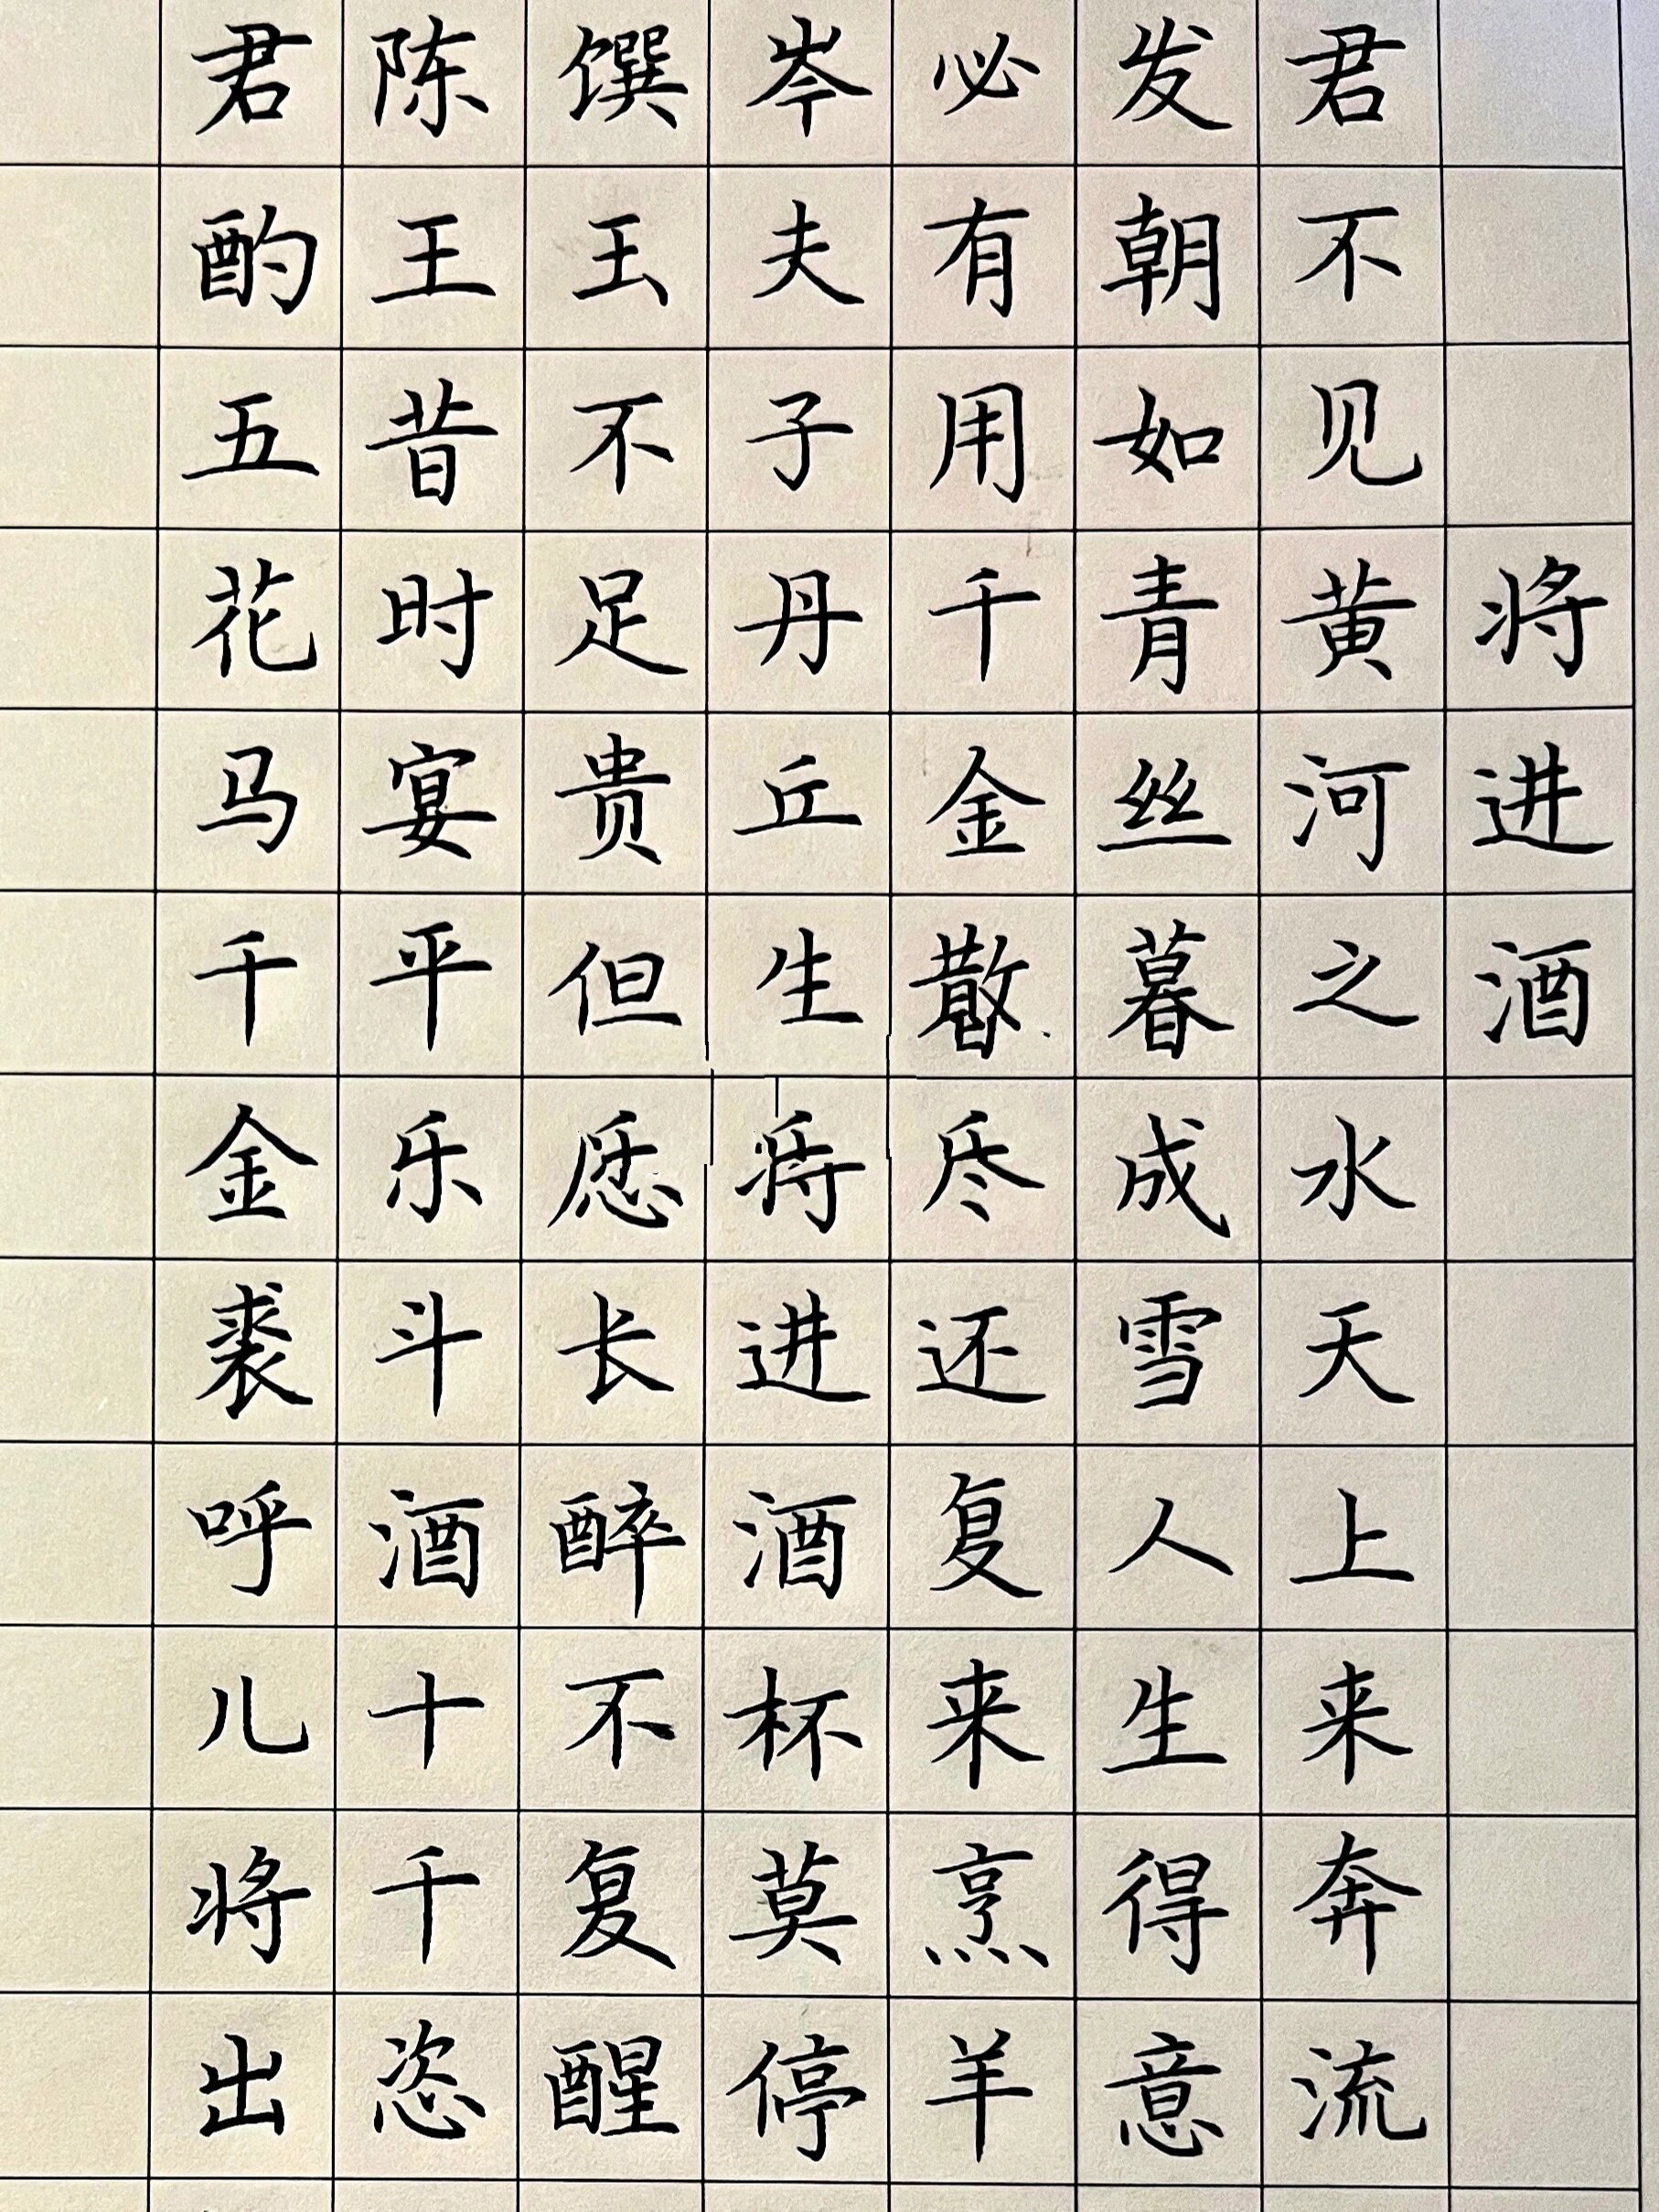 将进酒
君不见黄河之水天上来奔流
发朝如青丝暮成雪人生得意
必有用千金还复来烹羊
岑夫子丹丘生进酒杯莫停
馔玉不足贵但长醉不复醒
陈王昔时宴平乐斗酒十千恣
君酌五花马千金裘呼儿将出